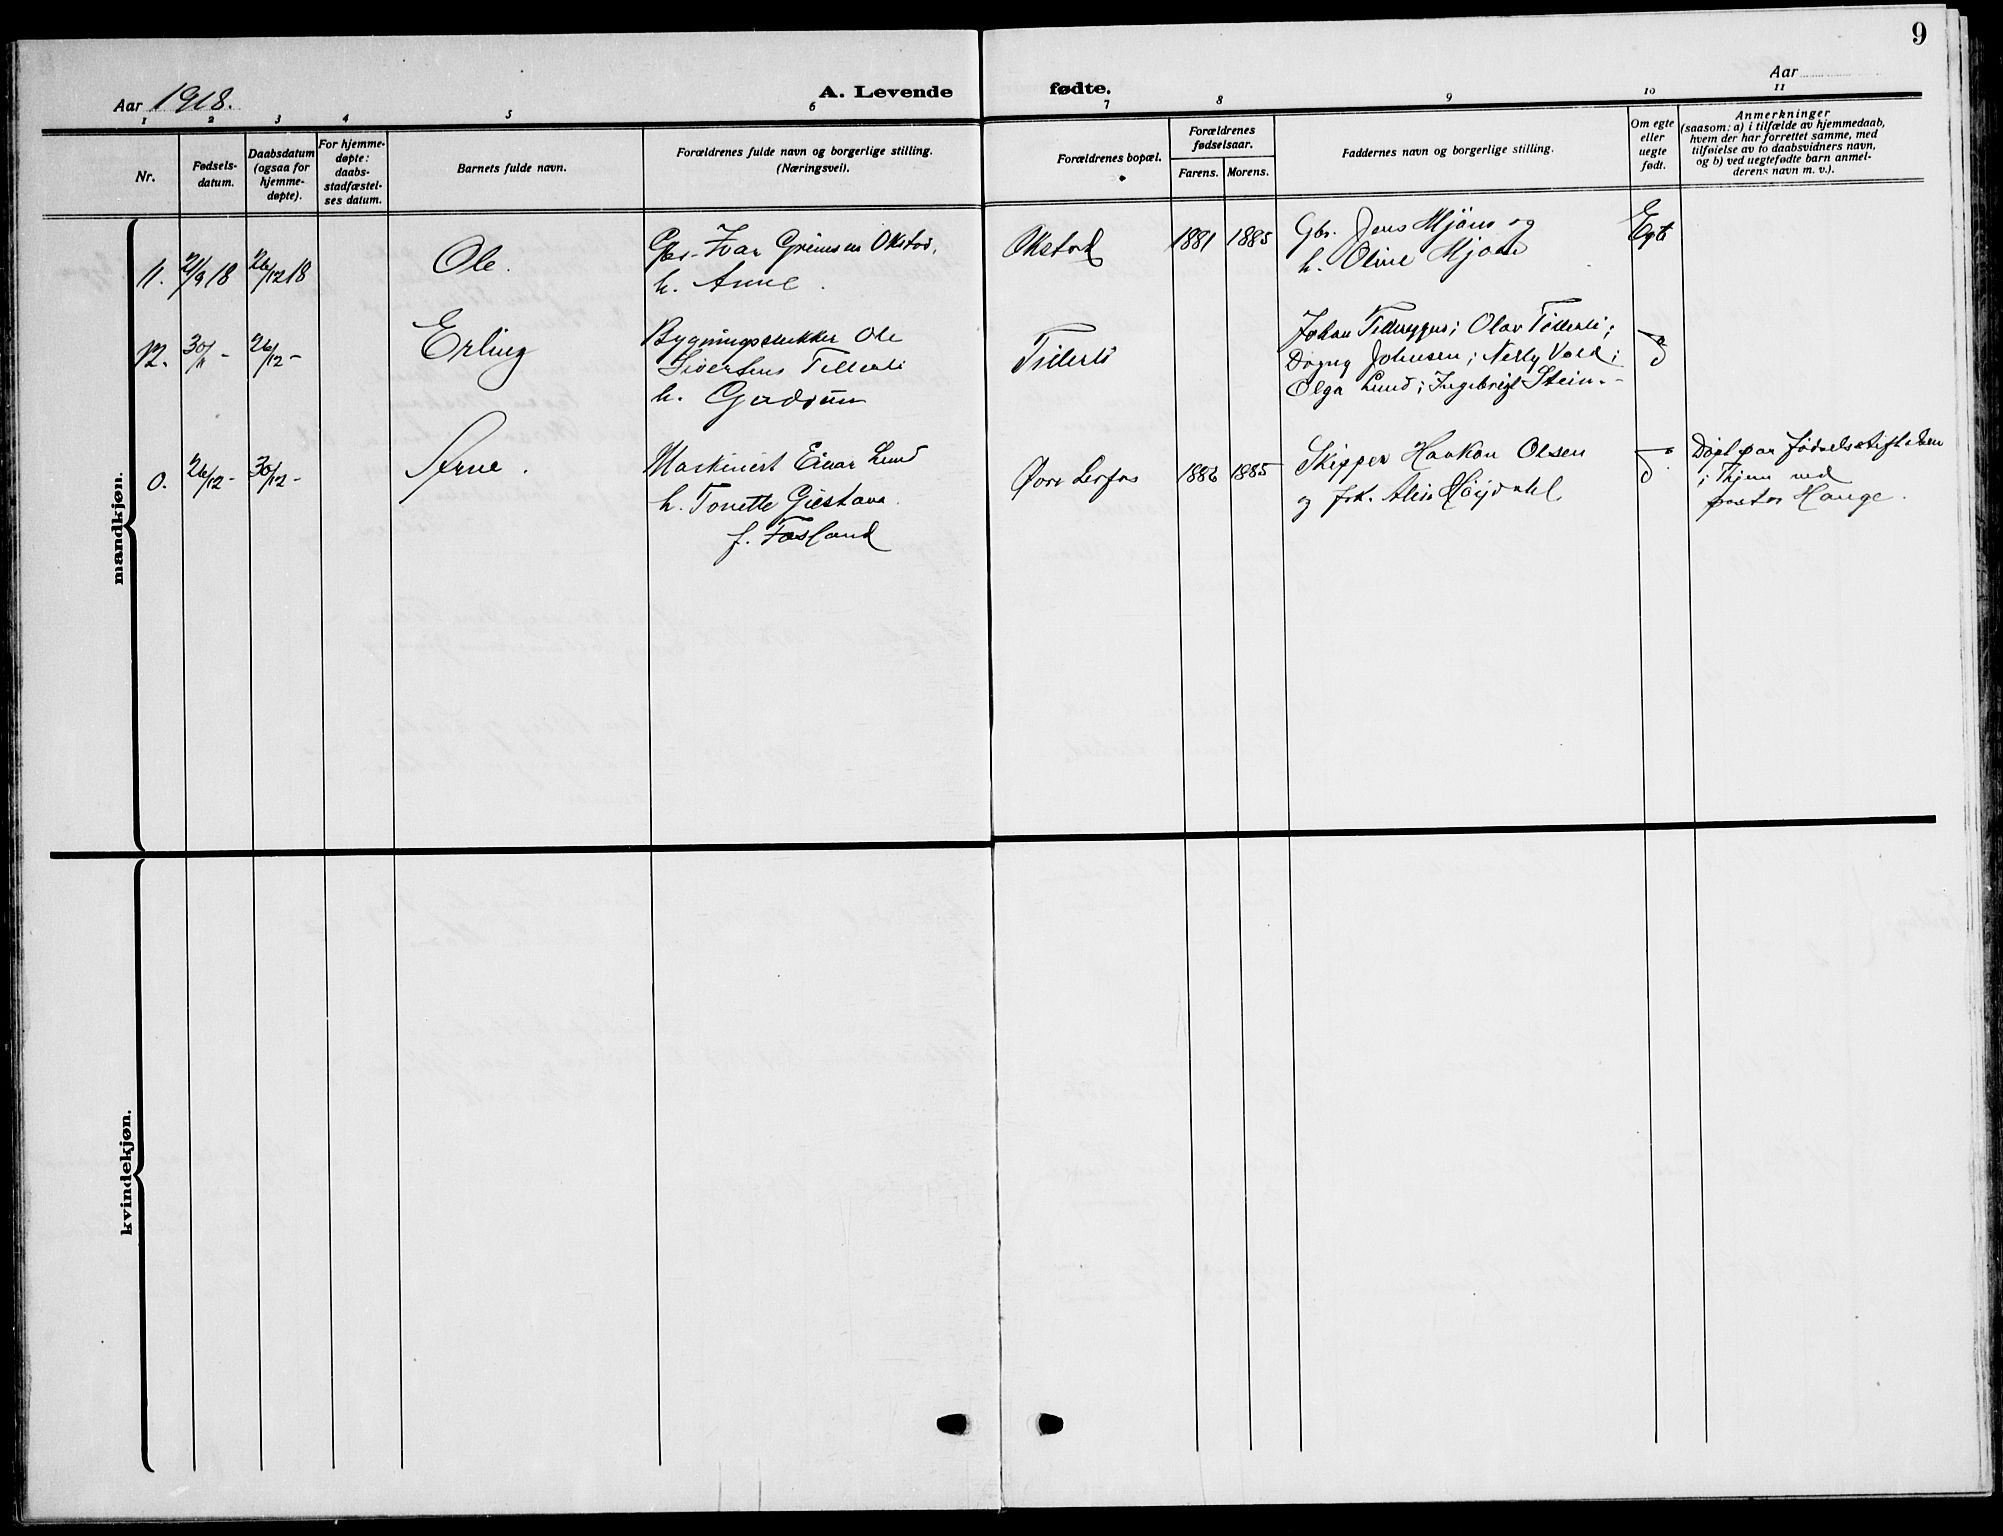 9
Aar 1918.
A. Levende
fødte.
Aar
1 2 3 4 5 6 7 8 9 10 11
Nr.
Fødsels-
datum.
Daabsdatum
(ogsaa for
hjemme-
døpte).
For hjemme-
døpte:
daabs-
stadfæstel-
ses datum.
Barnets fulde navn.
Forældrenes fulde navn og borgerlige stilling.
(Næringsvei).
Forældrenes bopæl.
Forældrenes
fødselsaar.
Farens. Morens.
Faddernes navn og borgerlige stilling.
Om egte
eller
uegte
født.
Anmerkninger
(saasom: a) i tilfælde av hjemmedaab,
hvem der har forrettet samme, med
tilføielse av to daabsvidners navn,
og b) ved uegtefødte barn anmel-
derens navn m. v.).
mandkjøn.
11. 21/9 18 26/12 18 Ole.
Gbr. Ivar Grimsen Okstad,
h. Anne.
Okstad 1881 1885
Gbr. Jens Mjøen og
h. Oline Mjøen
Egte
12. 30/11 - 26/12 - Erling
Bygningssnekker Ole
Sivertsens Tillerli
h. Gudrun
Tillerli
Johan ; Olav Tillerli;
Dagny Johnsen; Nelly Vold;
Olga Lund; Ingebrigt Stein.-
do
0. 26/12 - 30/12 - Arne.
Maskinist Einar Lund
h. Tonette Gustava
f. Fosland
Øvre Lerfos 1886 1885
Skipper Haakon Olsen
og frk. Høydahl
do
Døpt paa Fødselsstiftelsen
i Thjem ved
pastor Hauge.
kvindekjøn.